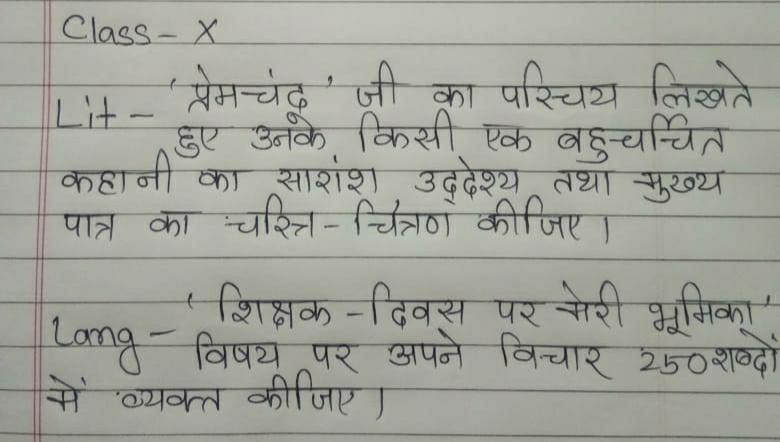 Class - X
Lit - 'प्रेमचंद' जी का परिचय लिखते
हुए उनके किसी एक बहु-चर्चित
कहानी का सारांश उद्देश्य तथा मुख्य
पात्र का चरित्र - चित्रण कीजिए।
Lang - 'शिक्षक - दिवस पर मेरी भूमिका'
विषय पर अपने विचार 250 शब्दों
में व्यक्त कीजिए।